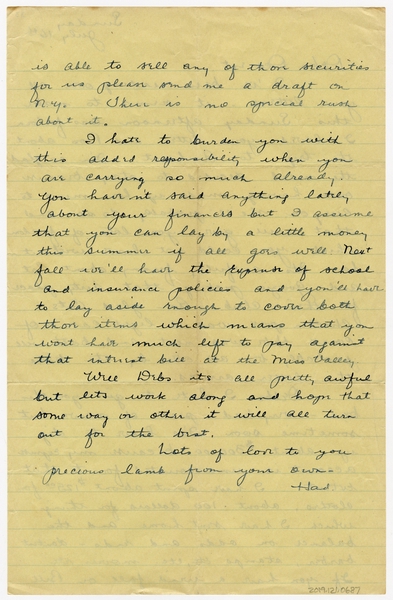 is able to sell any of those securities
for us please send me a draft on
N.Y. There is no special rush
about it.
I hate to burden you with
this add'd responsibility when you
are carrying so much already.
You havn't said anything lately
about your finances but I assume
that you can lay by a little money
this summer if all goes well. Next
fall we'll have the expense of school
and insurance policies and you'll have
to lay aside enough to cover both
those items which means that you
wont have much left to pay against
that interest bill at the Miss Valley
Well Debs its all pretty awful
but lets work along and hope that
some way or other it will all turn
out for the best.
Lots of love to you
precious lamb from your own-
Had
2019.121.0687